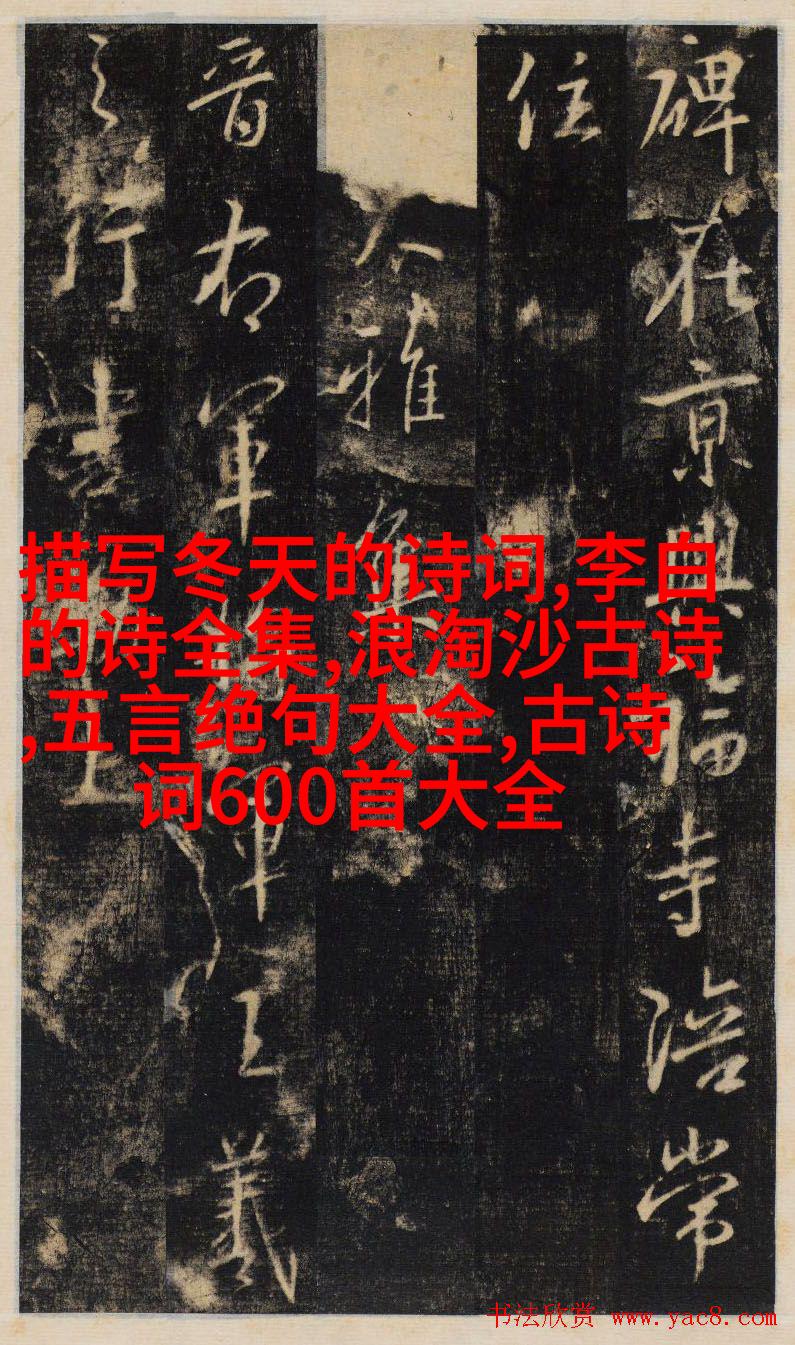 碑在京興福寺陪常
住
大雅集
晋右軍將軍王羲
之行書勒上
描写冬天的诗词,李白
的诗全集,浪淘沙古诗
,五言绝句大全,古诗
词600首大全
书法欣赏 www.yac8.com